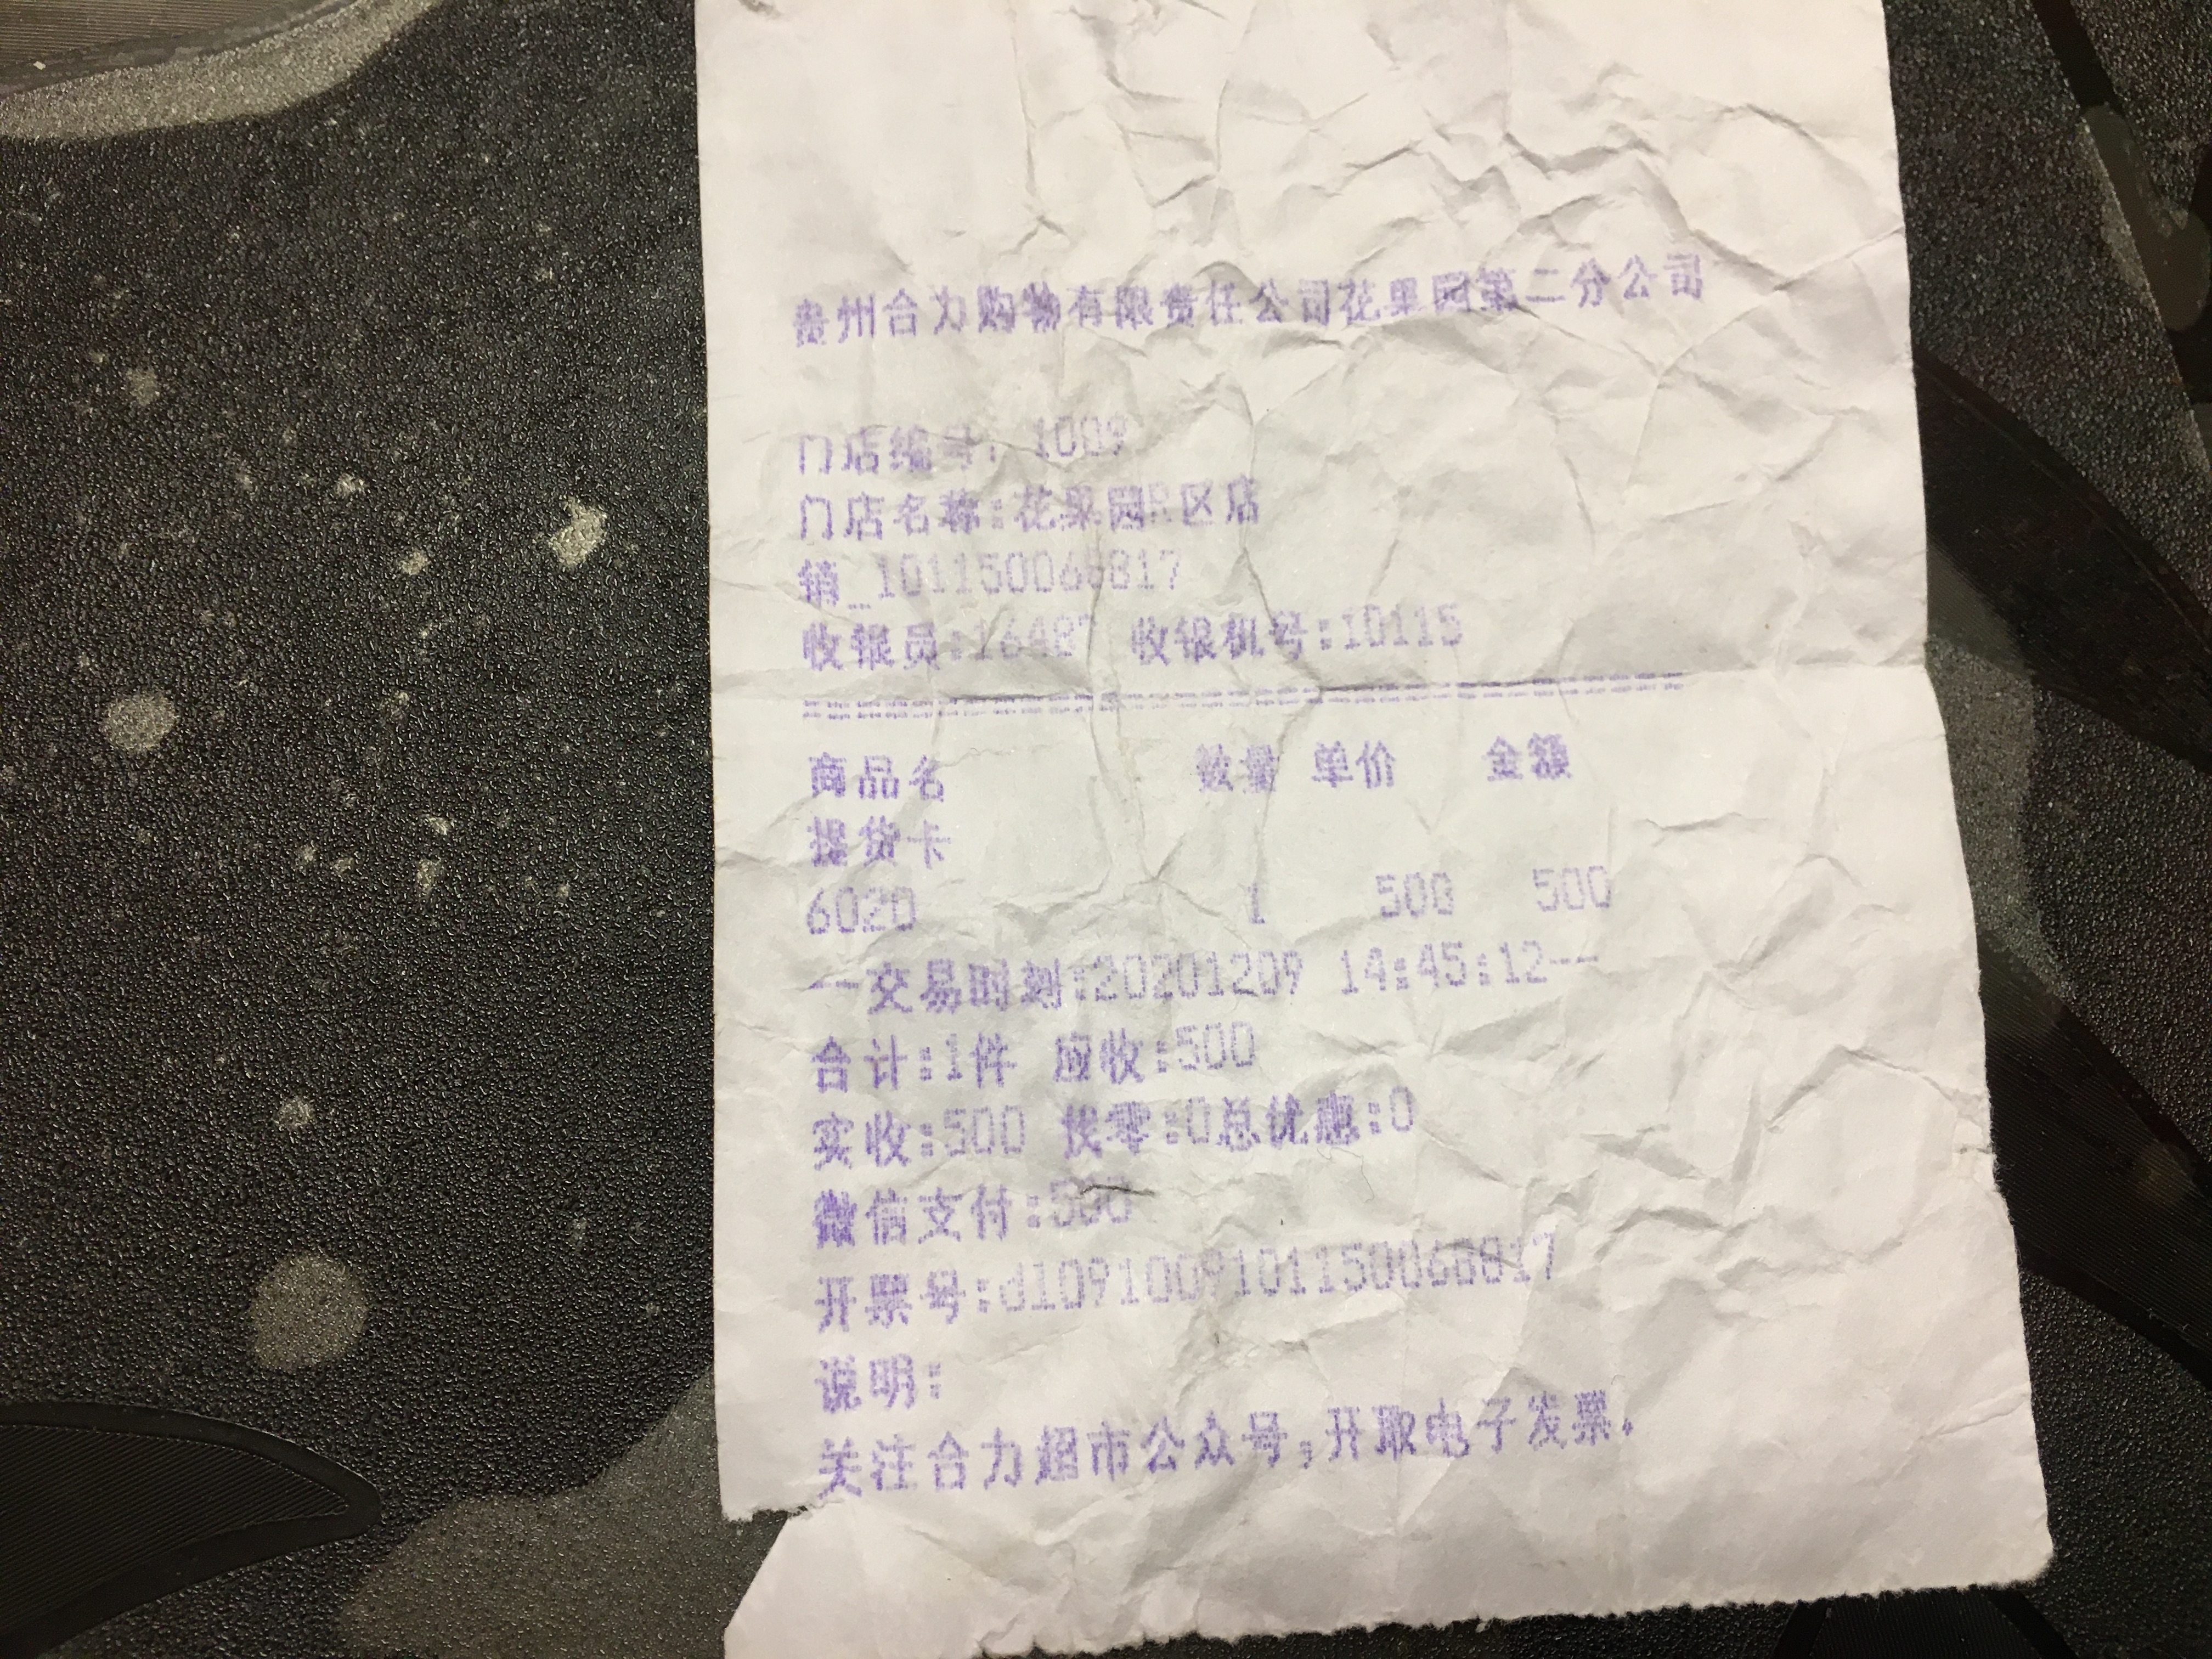 贵州合力购物有限责任公司花果园第二分公司
门店编号: 1009
门店名称:花果园R区店
销_101150068817
收银员:16487 收银机号:10115
商品名 数量 单价 金额
提货卡
6020 1 500 500
--交易时刻:20201209 14:45:12--
合计:1件 应收:500
实收:500 找零:0总优惠:0
微信支付:500
开票号:d1091009101150068817
说明:
关注合力超市公众号,开取电子发票.